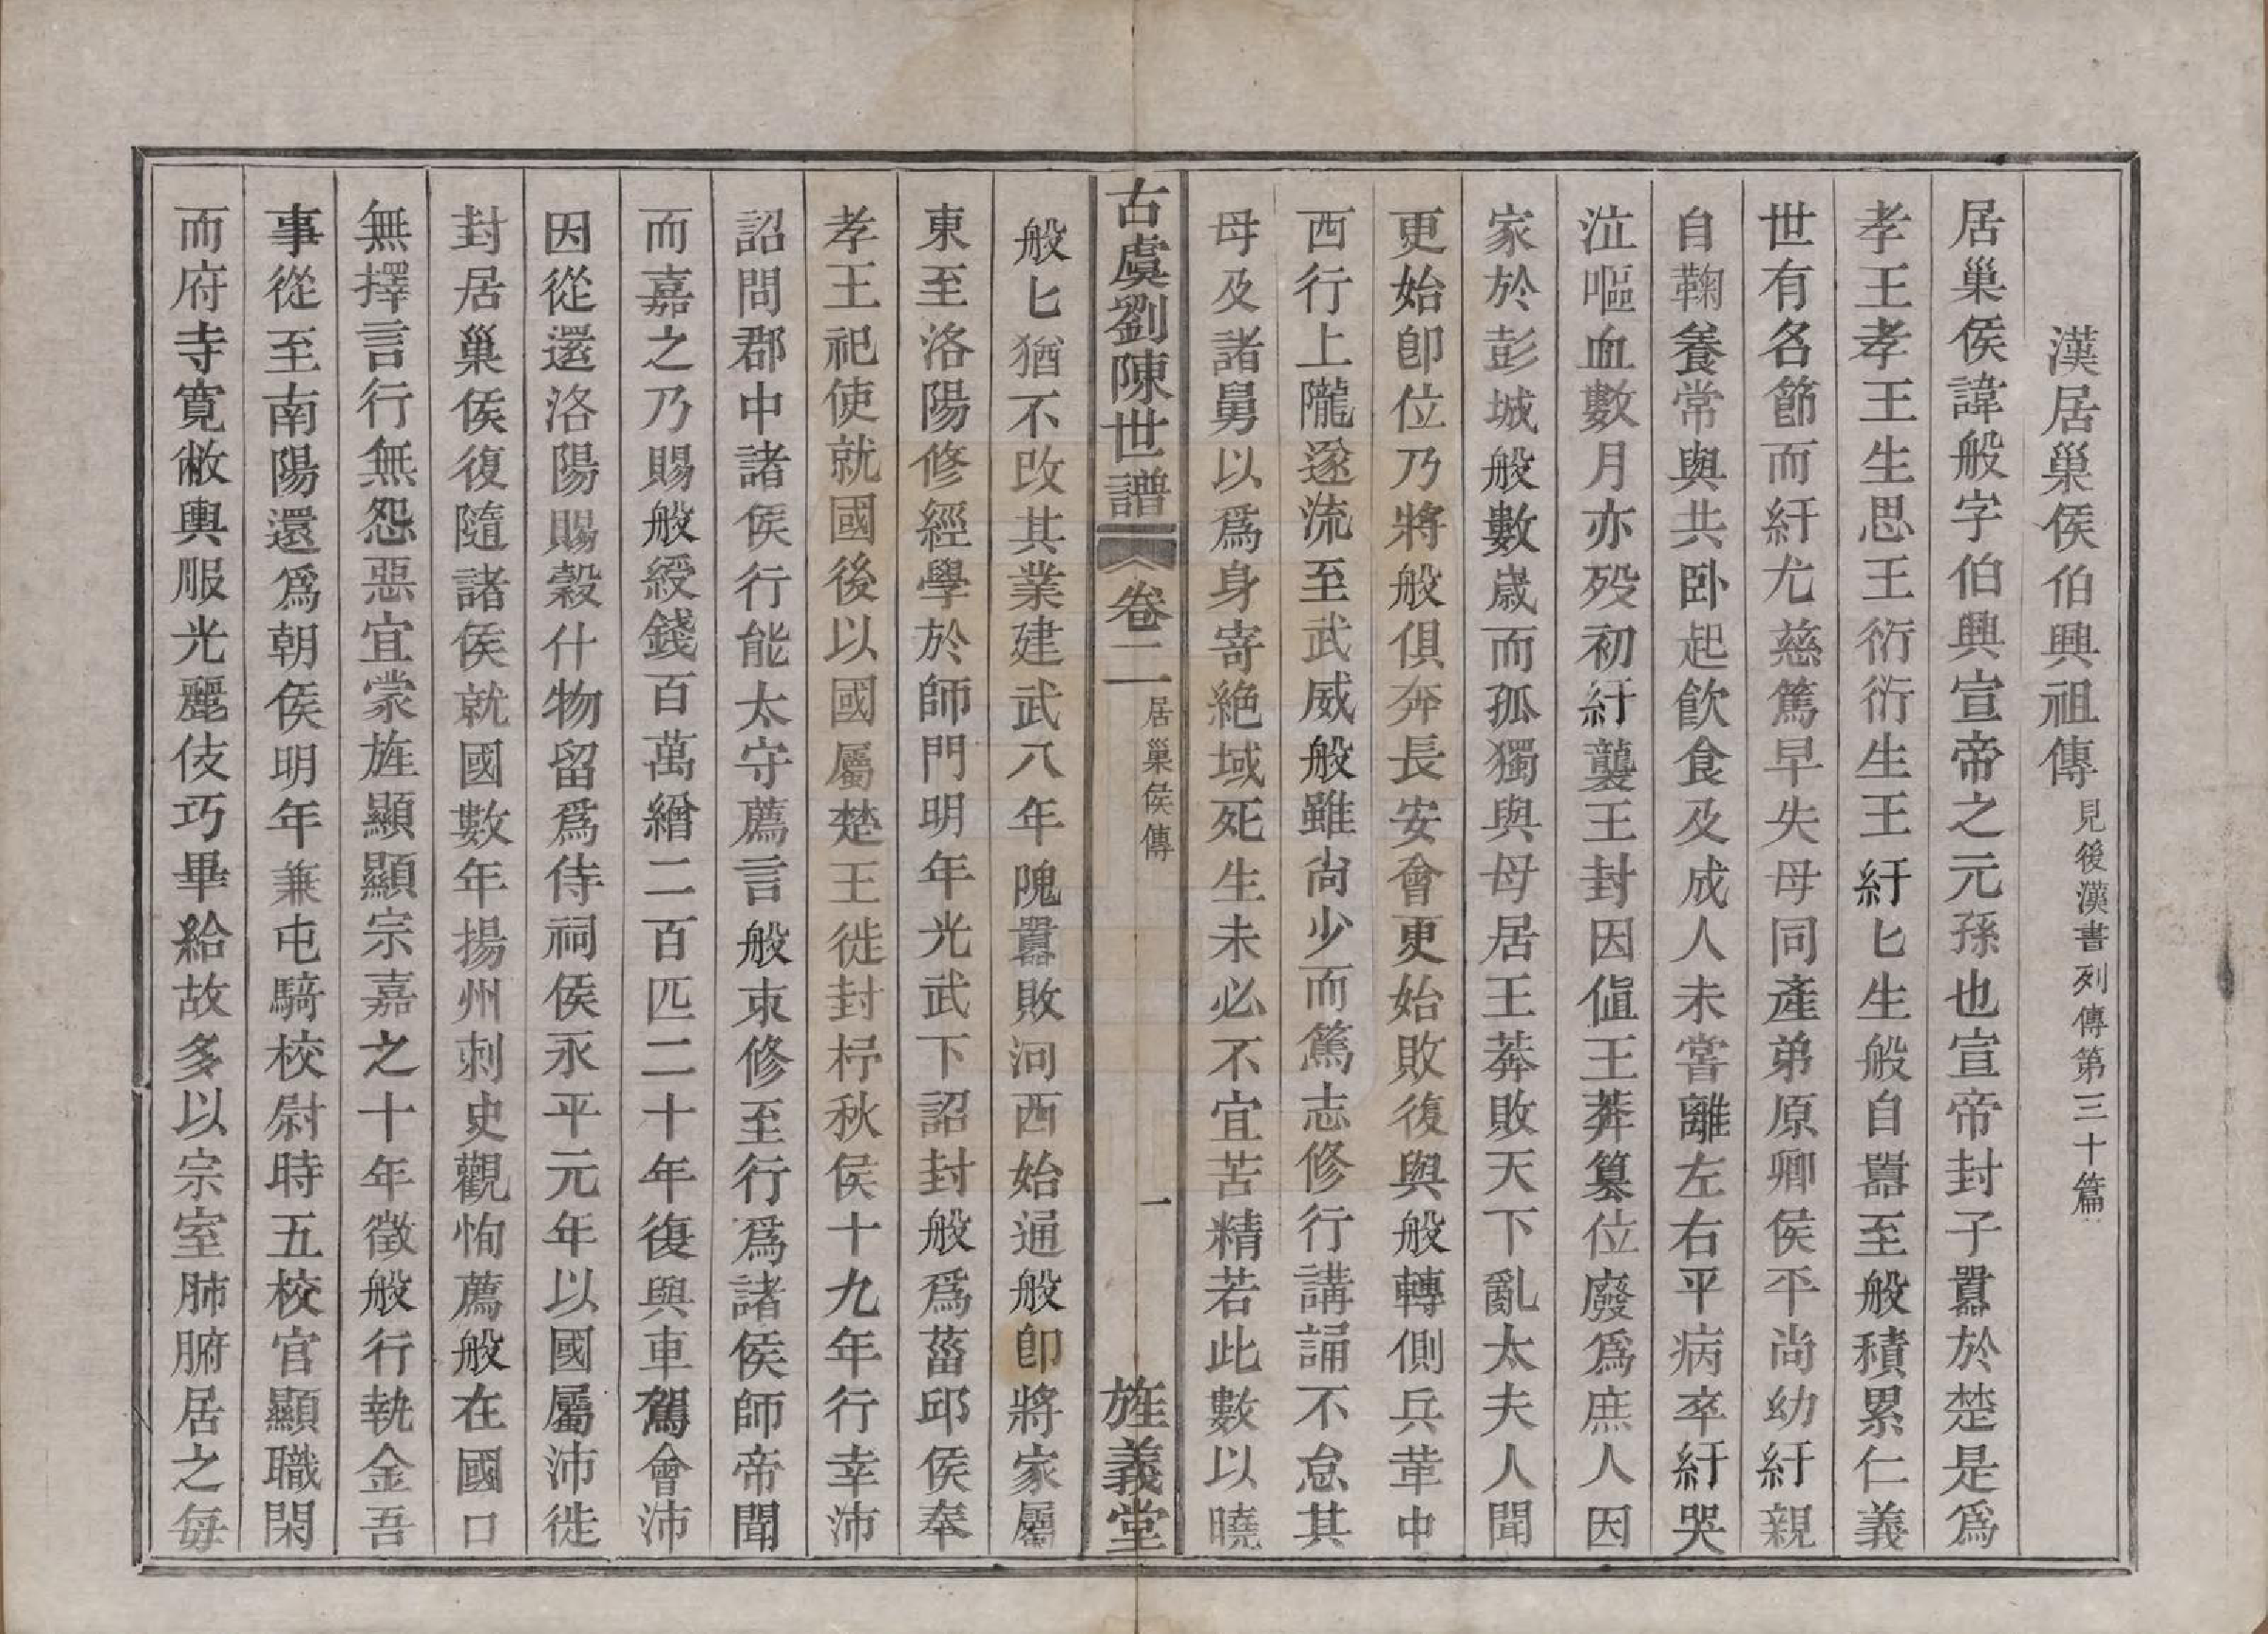 漢居巢侯伯興祖傳見後漢書列傳第三十篇
居巢侯諱般字伯興宣帝之元孫也宣帝封子囂於楚是爲
孝王孝王生思王衍衍生王紆匕生般自囂至般積累仁義
世有名節而紆尤慈篤早失母同產弟原卿侯平尚幼紆親
自鞠養常與共卧起飲食及成人未嘗離左右平病卒紆哭
泣嘔血數月亦殁初紆襲王封因值王莽篡位廢爲庶人因
家於彭城般數歲而孤獨與母居王莽敗天下亂太夫人聞
更始卽位乃將般俱奔長安會更始敗復與般轉側兵革中
西行上隴遂流至武威般雖尚少而篤志修行講誦不怠其
母及諸舅以爲身寄絶域死生未必不宜苦精若此數以曉
古虞劉陳世譜 卷二 居巢侯傳 一 旌義堂
般匕猶不改其業建武八年隗囂敗河西始通般卽將家屬
東至洛陽修經學於師門明年光武下詔封般爲菑邱侯奉
孝王祀使就國後以國屬楚王徙封杼秋侯十九年行幸沛
詔問郡中諸侯行能太守薦言般束修至行爲諸侯師帝聞
而嘉之乃賜般綬錢百萬繒二百匹二十年復與車駕會沛
因從還洛陽賜穀什物留爲侍祠侯永平元年以國屬沛徙
封居巢侯復隨諸侯就國數年揚州刺史觀恂薦般在國口
無擇言行無怨惡宜蒙旌顯顯宗嘉之十年徵般行執金吾
事從至南陽還爲朝侯明年兼屯騎校尉時五校官顯職閑
而府寺寬敝輿服光麗伎巧畢給故多以宗室肺腑居之每